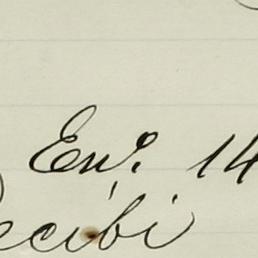 Enº. 14
ecibi